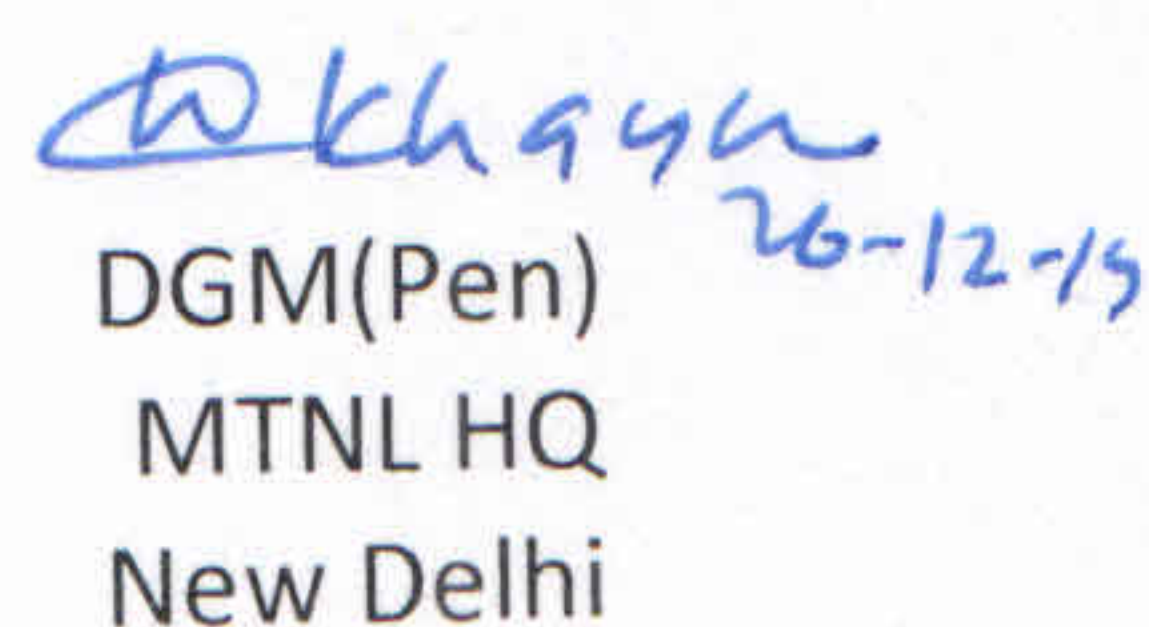 26-12-19
DGM(Pen)
MTNL HQ
New Delhi